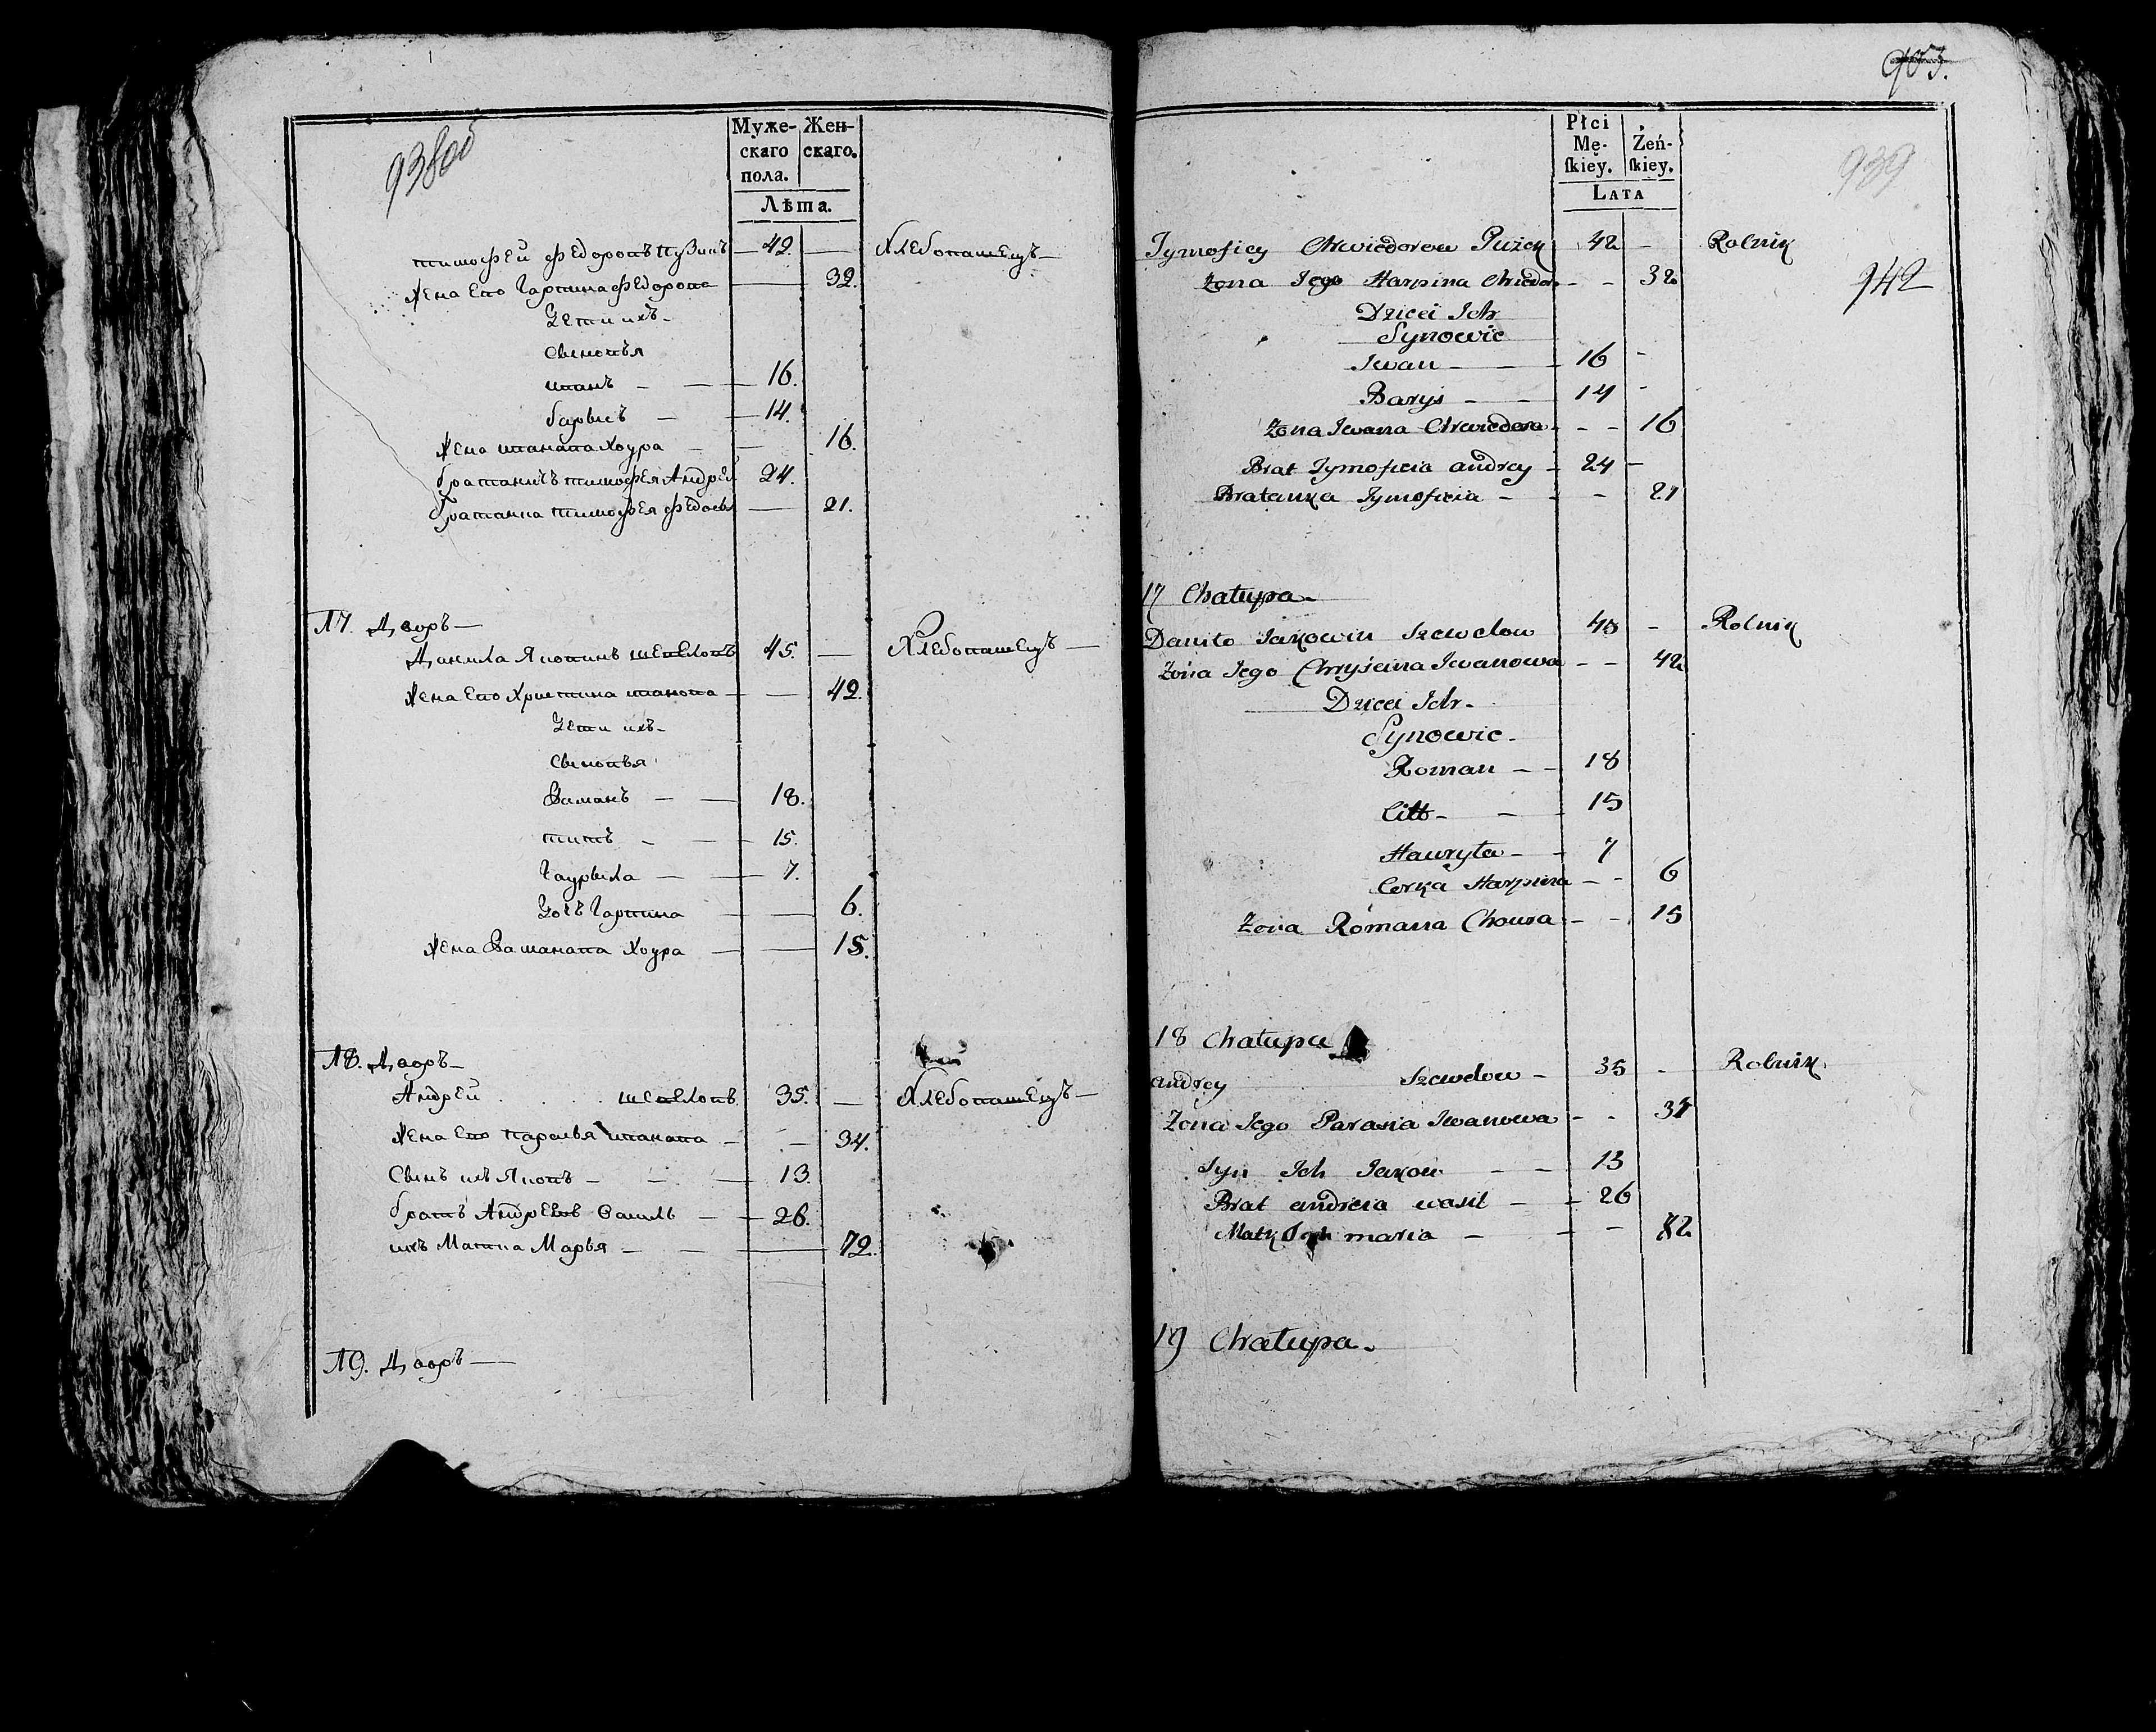 938об
Муже- Жен-
скаго скаго.
пола.
Лѣта.
тимофей федоровъ пузикъ — 42. — Хлебопашецъ —
жена его Гарпина федорова — 32.
Дети ихъ —
Сыновья
иванъ — 16.
барысъ — 14.
жена ивана Хоура — 16.
братаничъ тимофея Андрей 24.
братанка тимофея федосья — 21.
17. Дворъ —
Данила Яковинъ шевеловъ 45. — Хлебопашецъ —
жена его Христина иванова — 42.
Дети ихъ —
Сыновья
Раманъ — 18.
титъ — 15.
Гаурыла — 7.
Дочь Гарпина — 6.
жена Рамана Хоура — 15.
18. Дворъ —
Андрей шевеловъ 35. — Хлебопашецъ —
жена его парасья ивана — 34.
Сынъ ихъ Яковъ — 13.
братъ Андреевъ Василь — 26.
ихъ Матка Марья — 72.
19. Дворъ —
903.
939
942
Płci
Mę- Żeń-
skiey. skiey.
LATA
Tymofiey Chwiedorow Puzik 42 — Rolnik
Żona Jego Harpina Chwiedor — 32
Dzieci Ich
Synowie
Iwan — 16 -
Barys — 14 -
Żona Iwana Chwiedora — 16
Brat Tymofieia andrey — 24 —
Bratanka Tymofieia — 21
17 Chałupa —
Daniło Jakowin Szewelow 45 — Rolnik
Żona Jego Chryścina Iwanowa — 42
Dzieci Ich —
Synowie —
Roman — 18
Citt — 15
Hawryła — 7
Corka Harpina — 6
Żona Romana Choura — 15
18 Chałupa
andrey Szewelow — 35 — Rolnik
Żona Jego Parasia Iwanowa — 34
Syn Ich Jakow — 13
Brat andreia wasil — 26
Matka Ich maria — 72
19 Chałupa —